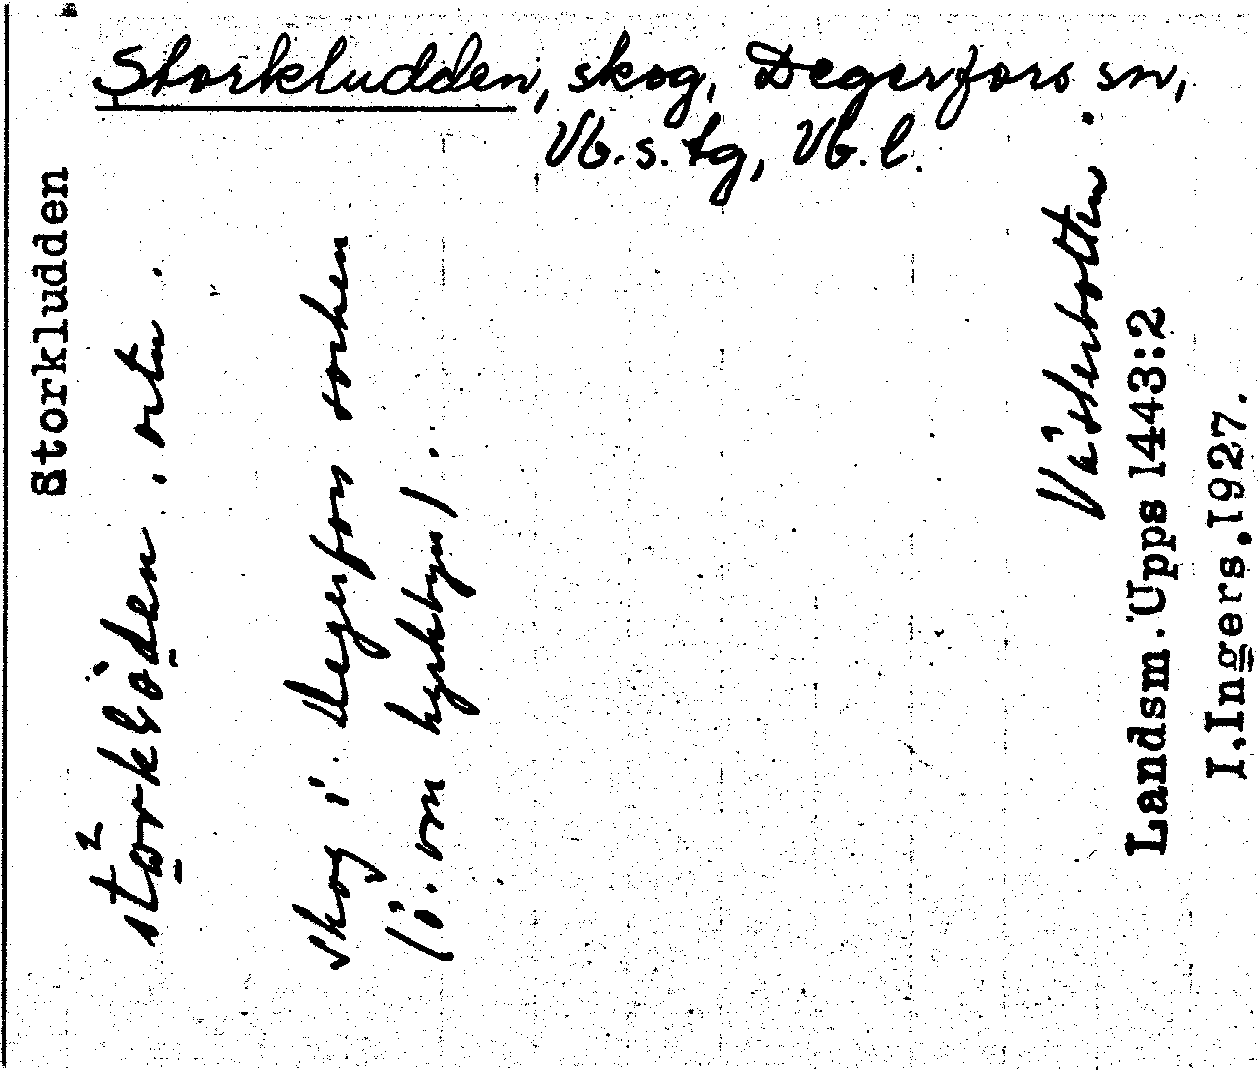 Storkludden, skog, Degerfors sn,
Vb. s. tg, Vb. l.
Storkludden
ortn.
skog i Degerfors socken
(ö. om kyrkbyn).
Västerbotten.
Landsm. Upps 1443:2
I.Ingers,1927.